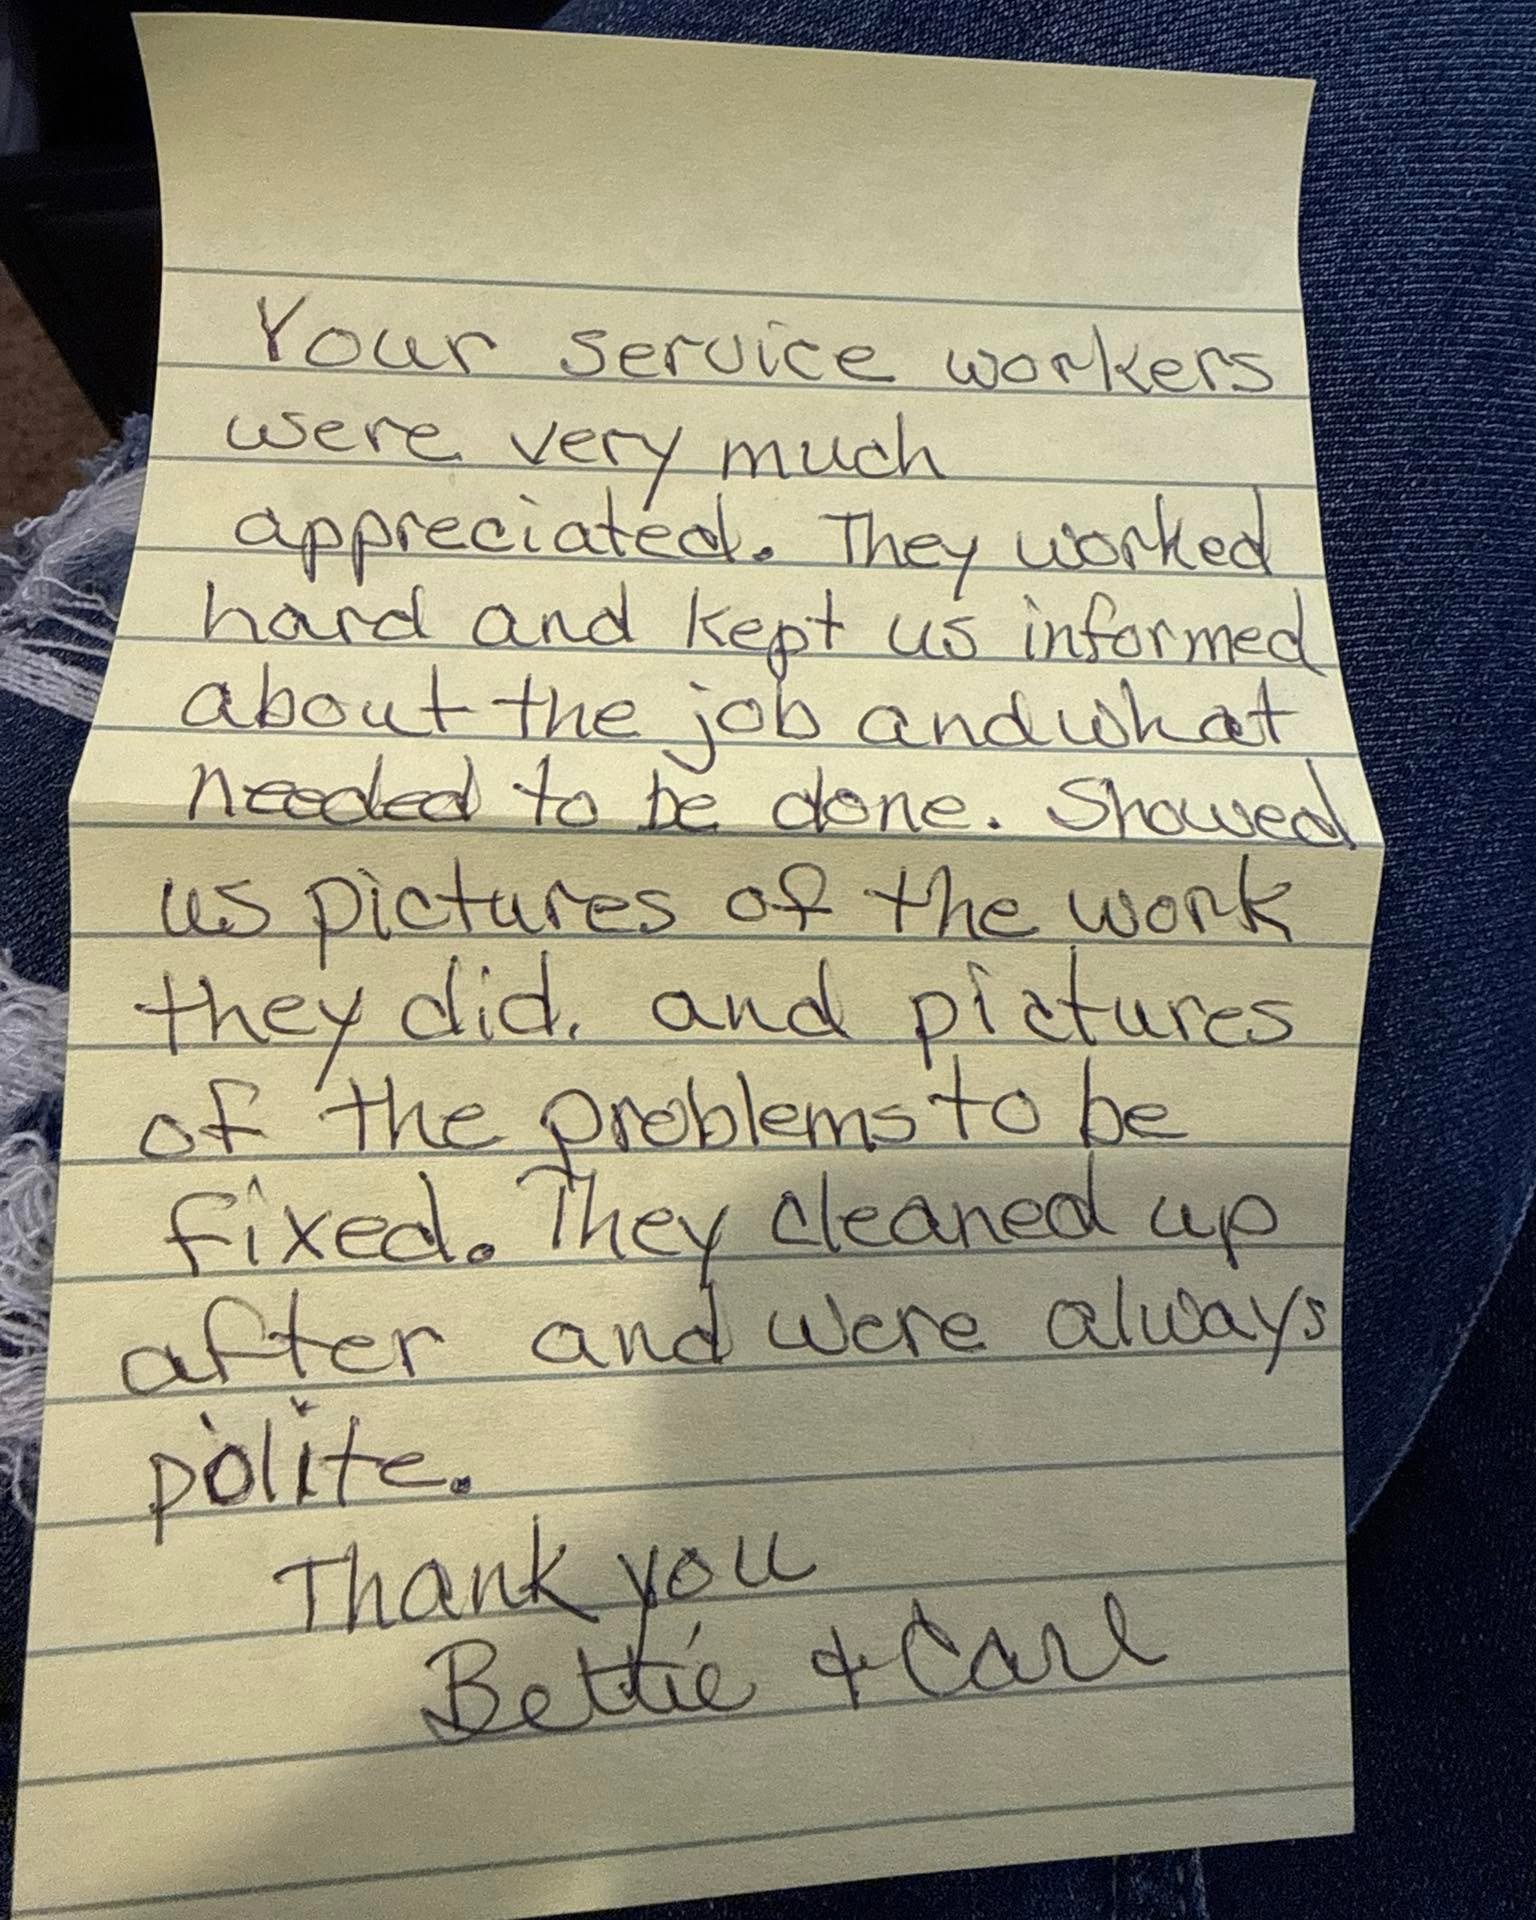 Your service workers
were very much
appreciated. They worked
hard and kept us informed
about the job and what
needed to be done. Showed
us pictures of the work
they did. and pictures
of the problems to be
fixed. They cleaned up
after and were always
polite.
Thank you
Bettie & Carl